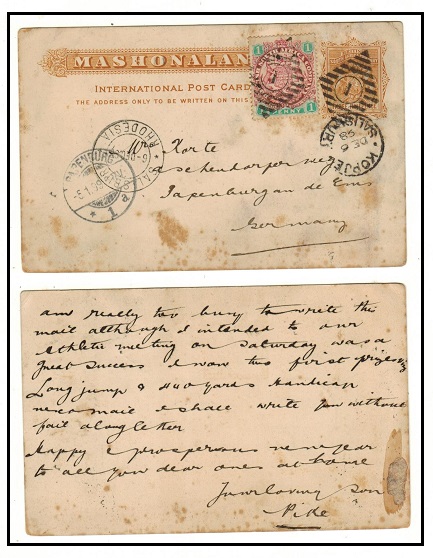 MASHONALAN
INTERNATIONAL POST CARD
THE ADDRESS ONLY TO BE WRITTEN ON THIS
1 1
SOUTH AFRICA COMPANY
PENNY 1
KOPJE
9 DE
98
SALISBURY
RHODESIA
PAPENBURG
5.1.99
* 1 a
Mrs Korte
aschendorper weg
Papenburg an de Ems
Germany
am really too busy to write this
mail although I intended to our
athletic meeting on Saturday was a
great success I won two first prizes
Long jump & 440 yards Handicap
next mail I shall write you without
fail a long letter
Happy & prosperous new year
to all you dear ones at home
Your loving son
Pike